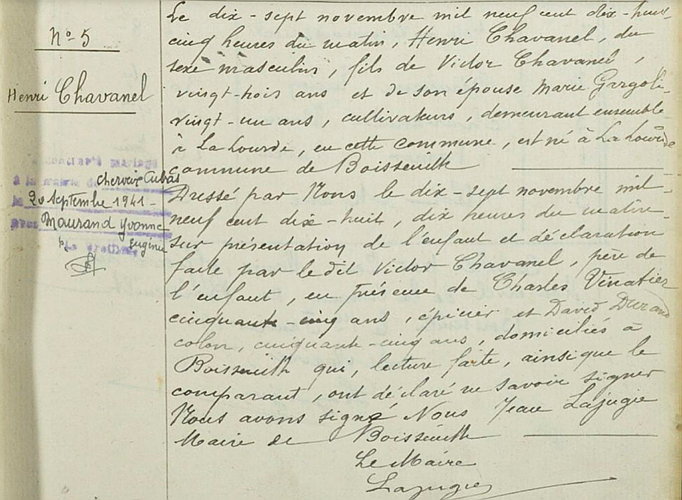 N° 5
Henri Chavanel
contracté mariage
à la mairie de Cherveix-Cubas
le 20 septembre 1941
avec Maurand Yvonne
Eugénie
Le greffier
Le dix-sept novembre mil neuf cent dix-huit
cinq heures du matin, Henri Chavanel, du
sexe masculin, fils de Victor Chavanel,
vingt-trois ans et de son épouse Marie Gargoli
vingt-un ans, cultivateurs, demeurant ensemble
à La Lourde, en cette commune, est né à La Lourde
commune de Boisseuilh
Dressé par Nous le dix-sept novembre mil
neuf cent dix-huit, dix heures du matin
sur présentation de l'enfant et déclaration
faite par le dit Victor Chavanel, père de
l'enfant, en présence de Charles Vinatier
cinquante-cinq ans, épicier et David Durand
colon, cinquante-cinq ans, domiciliés à
Boisseuilh qui, lecture faite, ainsi que le
comparant, ont déclaré ne savoir signer
Nous avons signé Nous Jean Lajugie
Maire de Boisseuilh
Le Maire
Lajugie